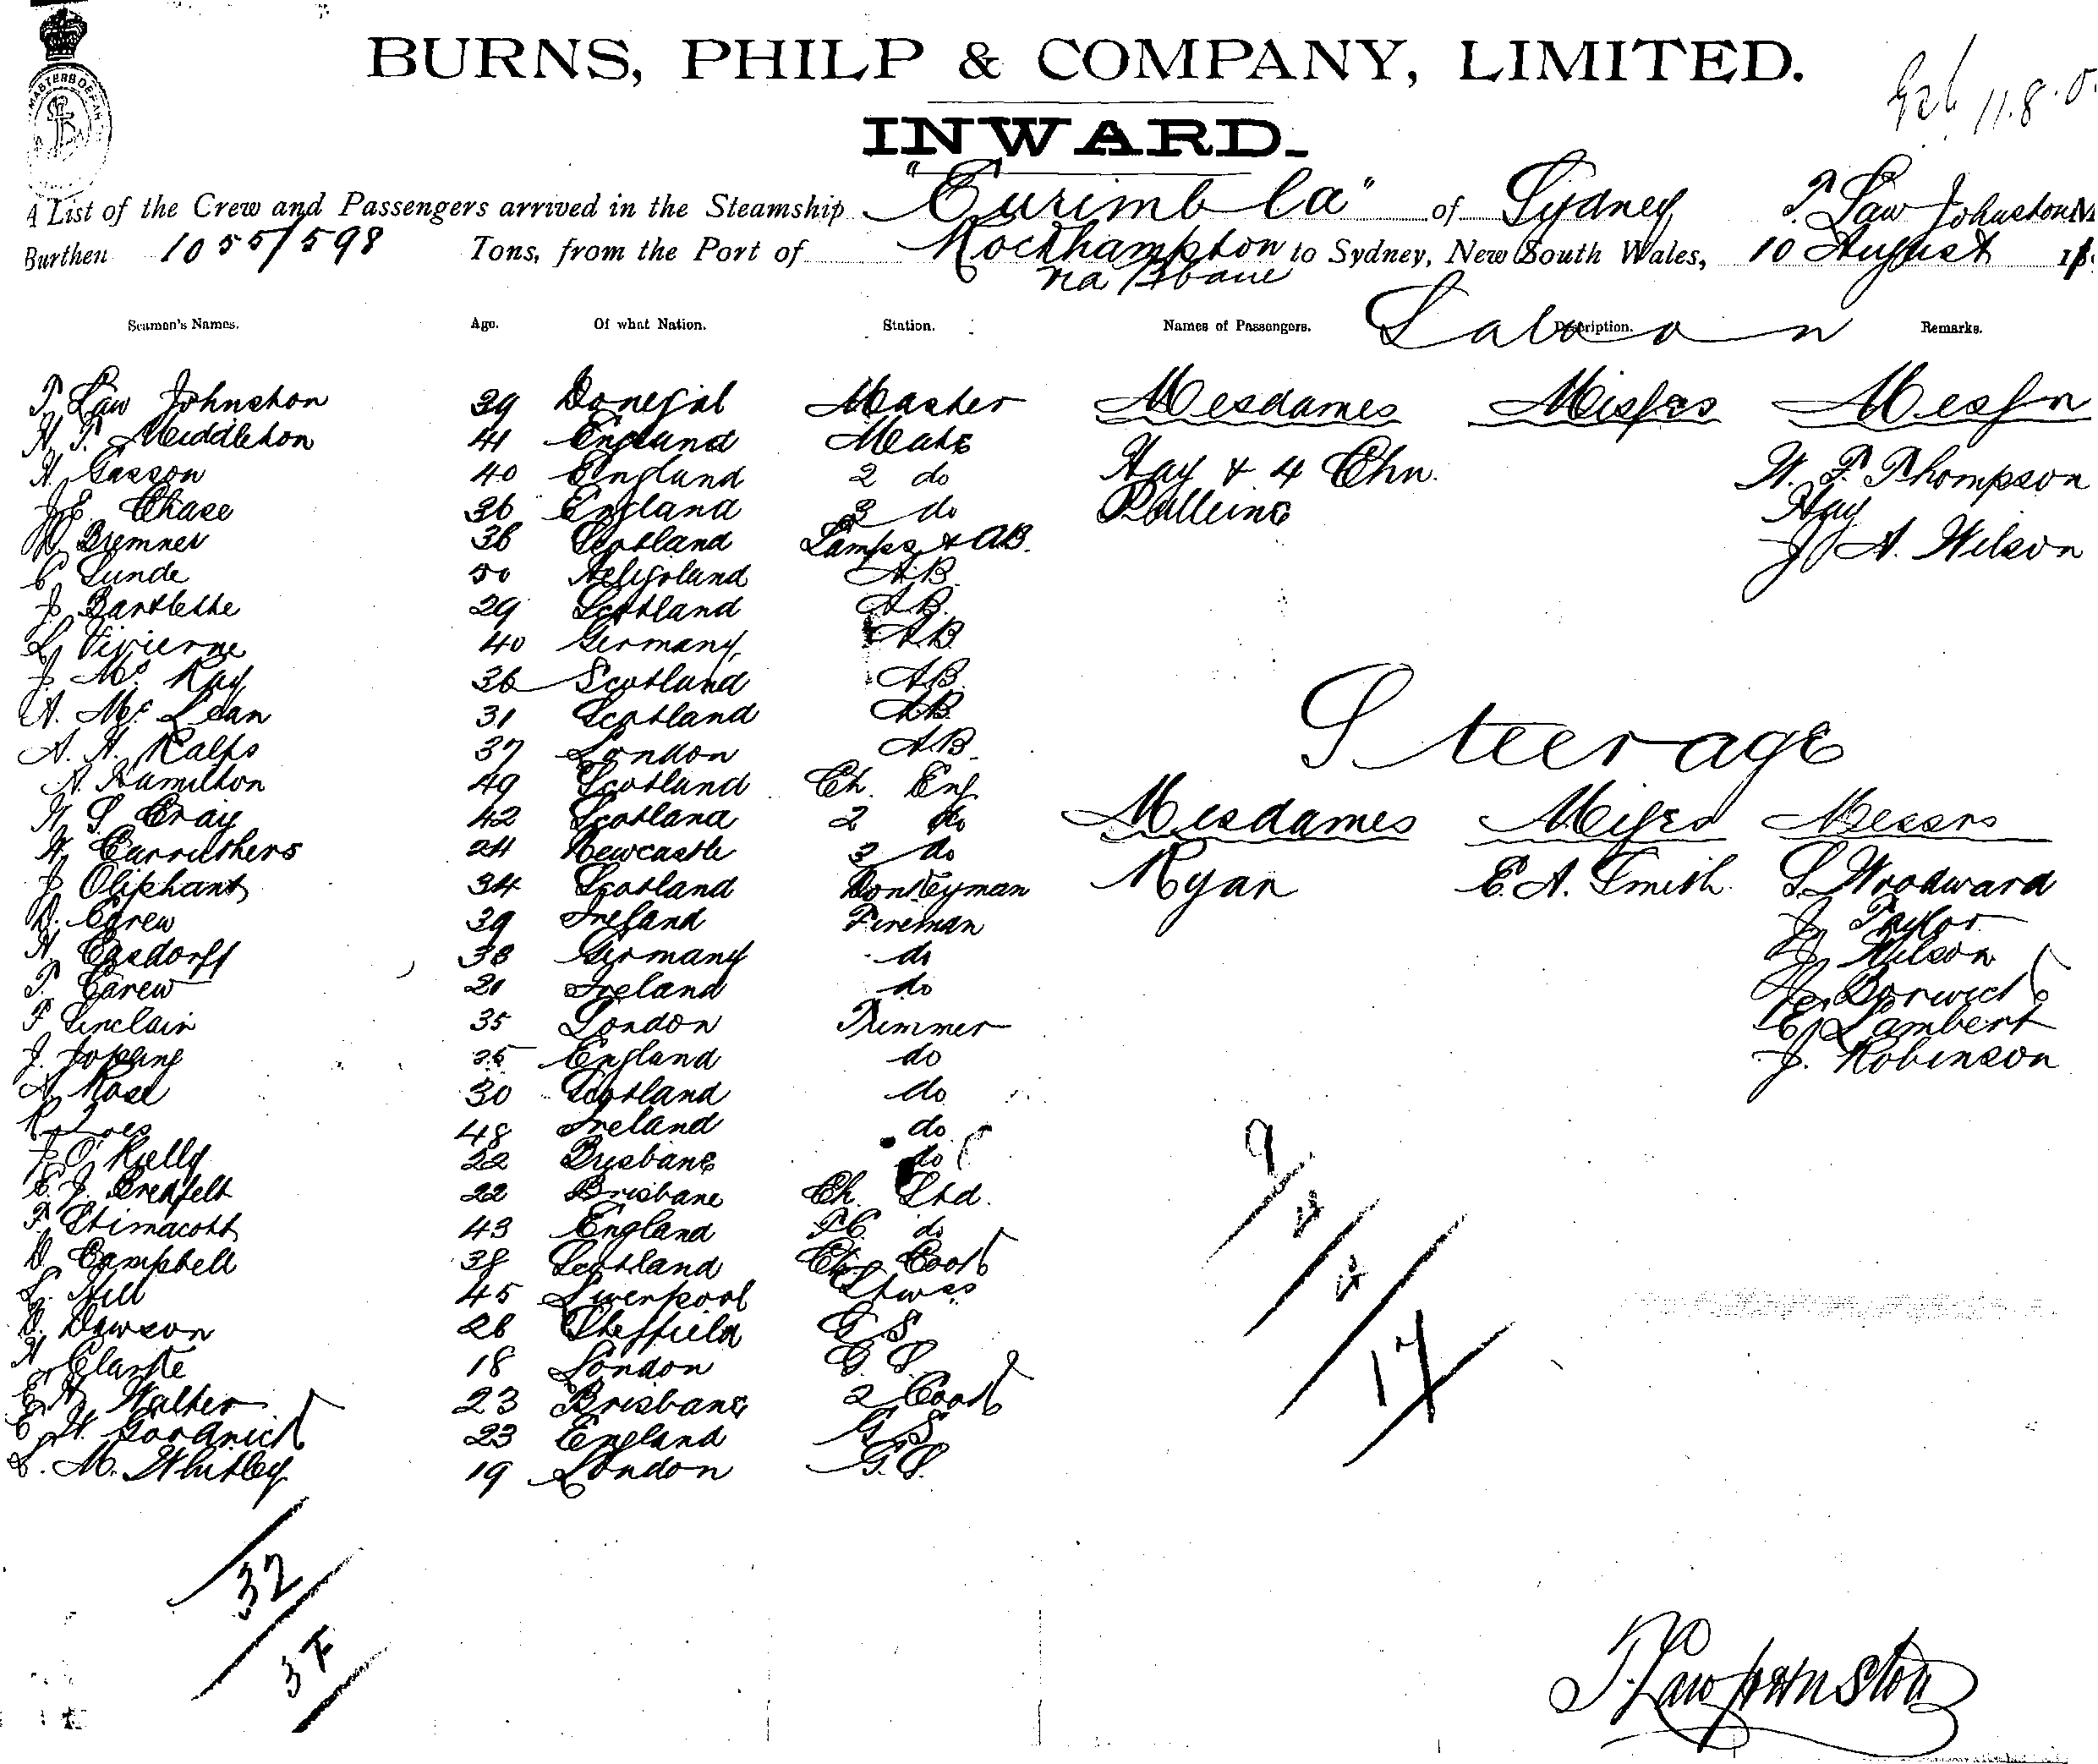 BURNS, PHILP & COMPANY, LIMITED.
11.8.0
INWARD.
A List of the Crew and Passengers arrived in the Steamship "Eurimbla" of Sydney P. Law Johnston M
Burthen 1055/598 Tons, from the Port of Rockhampton to Sydney, New South Wales, 10 August 18
via Bbane
Seamen's Names. Age. Of what Nation. Station. Names of Passengers. Description. Remarks.
Saloon
P Law Johnston 39 Donegal Master Mesdames Misses Messrs
H. P. Middleton 41 England Mate
H. Gasson 40 England 2 do Hay & 4 Chn. W. P. Thompson
J E Chase 36 England 3 do Pulleine Hay
D Bremner 36 Scotland Lamps & AB. J A. Wilson
C Lunde 50 Heligoland AB.
J. Bartlette 29 Scotland AB.
L Vivierne 40 Germany AB
J. Mc Kay 36 Scotland AB.
A. Mc Lean 31 Scotland AB
A. H. Ralfs 37 London AB.
Steerage
A. Hamilton 49 Scotland Ch. Eng
W S Craig 42 Scotland 2 do Mesdames Misses Messrs
W. Carruthers 24 Newcastle 3 do
J Oliphant 34 Scotland Donkeyman Ryan E. A. Smith S. Woodward
D. Carew 39 Ireland Fireman J. Taylor
H. Easdorff 38 Germany do Wilson
P. Carew 21 Ireland do Borwick
F Sinclair 35 London Trimmer E Lambert
J. Jopling 25 England do J. Robinson
A. Rose 30 Scotland do
48 Ireland do
J O'Kelly 22 Brisbane do
E. J. Bredfelt 22 Brisbane Ch. Std.
F. Stimacott 43 England FC. do
D Campbell 38 Scotland Ch. Cook
L. Hill 45 Liverpool Stwss
D. Dawson 26 Sheffield G S
H Clarke 18 London G. S.
E A Walker 23 Brisbane 2 Cook
E H. Goodrick 23 England G S
L. M. Whitley 19 London G. S.
9
17
32
37
P. Law Johnston